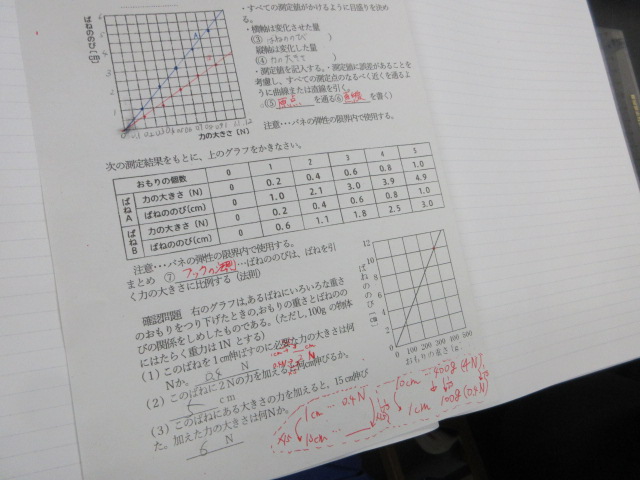 ・すべての測定値がかけるように目盛りを決める。
・横軸は変化させた量
(③ ばねののび )
縦軸は変化した量
(④ 力の大きさ )
・測定値を記入する。・測定値に誤差があることを
考慮し、すべての測定点のなるべく近くを通るよ
うに曲線または直線を引く。
(⑤ 原点 を通る⑥ 直線 を書く)
ばねののび〔cm〕
力の大きさ〔N〕
注意･･･バネの弾性の限界内で使用する。
次の測定結果をもとに、上のグラフをかきなさい。
おもりの個数 0 1 2 3 4 5
ばねA 力の大きさ〔N〕 0 0.2 0.4 0.6 0.8 1.0
ばねののび〔cm〕 0 1.0 2.1 3.0 3.9 4.9
ばねB 力の大きさ〔N〕 0 0.2 0.4 0.6 0.8 1.0
ばねののび〔cm〕 0 0.6 1.1 1.8 2.5 3.0
注意･･･バネの弾性の限界内で使用する。
まとめ ⑦ フックの法則 …ばねののびは、ばねを引
く力の大きさに比例する（法則）
確認問題 右のグラフは、あるばねにいろいろな重さ
のおもりをつり下げたときの、おもりの重さとばねのの
びの関係をしめしたものである。(ただし、100gの物体
にはたらく重力は1N とする)
(1) このばねを1cm伸ばすのに必要な力の大きさは何
Nか。 0.4 N
(2) このばねに2Nの力を加えると何cm伸びるか。
5 cm
(3) このばねにある大きさの力を加えると、15cm伸び
た。加えた力の大きさは何Nか。
6 N
ばねののび〔cm〕
12
10
8
6
4
2
0
0 100 200 300 400 500
おもりの重さ〔g〕
10cm … 400g (4N)
1cm 100g (0.4N)
1cm … 0.4N
15cm …